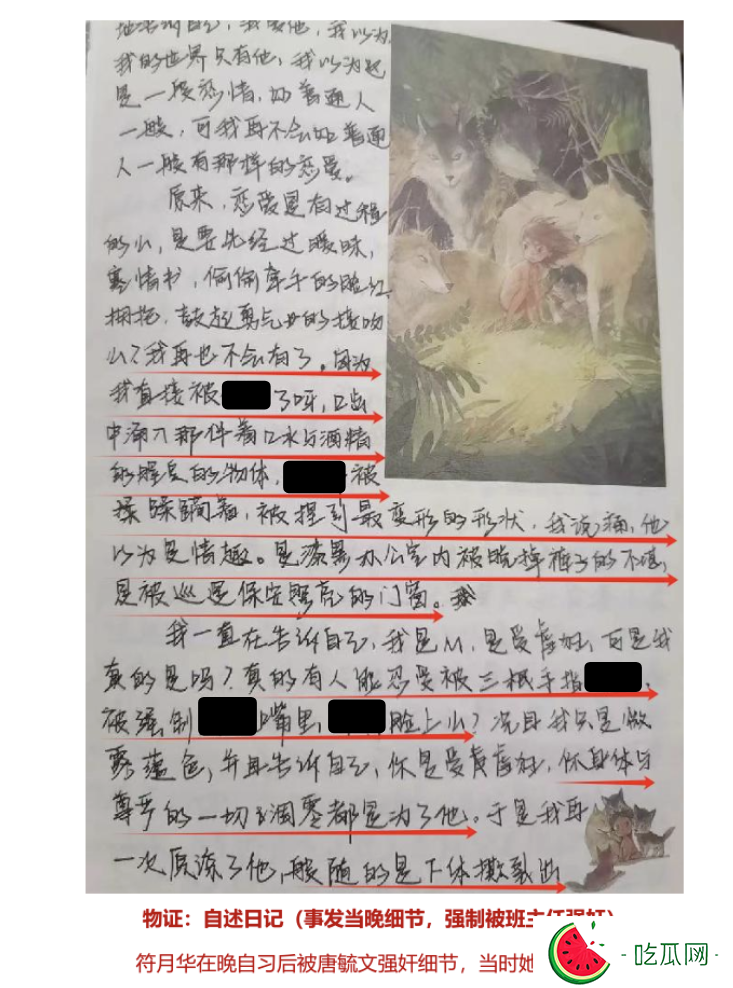 我的世界只有他，我以为这
是一段恋情，如普通人
一般，可我再不会如普通
人一般有那样的恋爱。
原来，恋爱是有过程
的么，是要先经过暧昧，
写情书，偷偷牵手的脸红
拥抱，鼓起勇气的接吻
么？我再也不会有了。因为
我直接被 了呀，口
中 那件着口水与酒精
的 的物体， 被
揉 ，被捏到最变形的形状，我说痛，他
以为是情趣。是漆黑办公室内被脱掉裤子的不堪，
是被巡逻保安照亮的门窗。
我一直在告诉自己，我是M，是受虐狂，可是我
真的是吗？真的有人能忍受被三根手指 ，
被强制 嘴里， 脸上么？况且我只是
，并且告诉自己，你是受虐狂，你身体与
尊严的一切 都是为了他。于是我再
一次原谅了他，伴随的是下体撕裂
物证：自述日记（事发当晚细节，强制被班主任强奸）
符月华在晚自习后被唐毓文强奸细节，当时她
·吃瓜网·